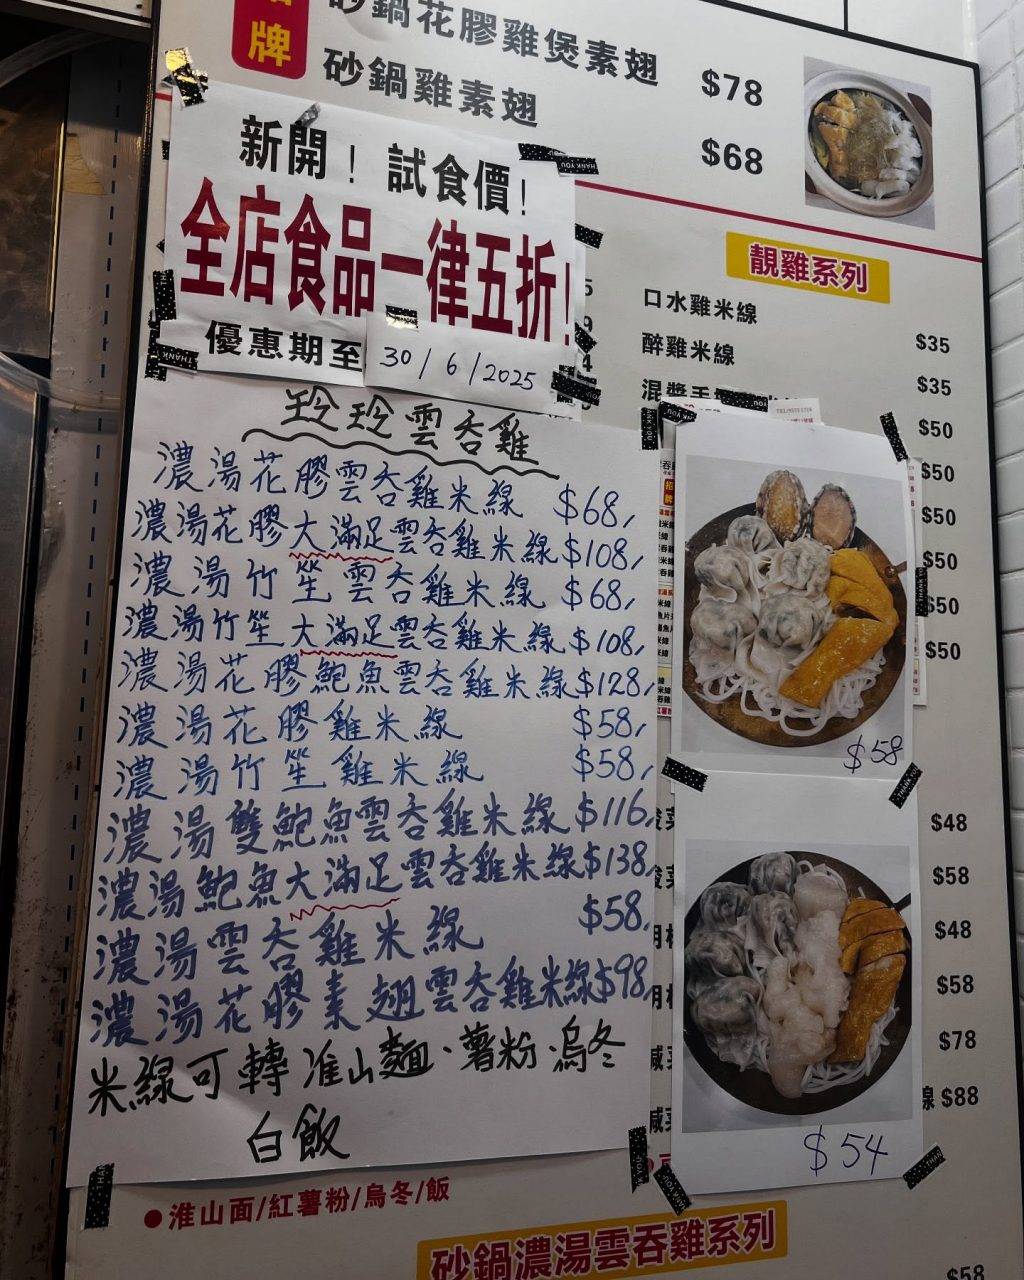 招牌
砂鍋花膠雞煲素翅 $78
砂鍋雞素翅 $68
新開！試食價！
全店食品一律五折！
優惠期至 30/6/2025
靚雞系列
口水雞米線 $35
醉雞米線 $35
混醬手
$50
$50
$50
$50
$50
$50
玲玲雲吞雞
濃湯花膠雲吞雞米線 $68,
濃湯花膠大滿足雲吞雞米線 $108,
濃湯竹笙雲吞雞米線 $68,
濃湯竹笙大滿足雲吞雞米線 $108,
濃湯花膠鮑魚雲吞雞米線 $128,
濃湯花膠雞米線 $58,
濃湯竹笙雞米線 $58,
濃湯雙鮑魚雲吞雞米線 $116,
濃湯鮑魚大滿足雲吞雞米線 $138
濃湯雲吞雞米線 $58,
濃湯花膠素翅雲吞雞米線 $98,
米線可轉淮山麵·薯粉·烏冬
白飯
$58
$54
$48
$58
$48
$58
$78
線 $88
●淮山面/紅薯粉/烏冬/飯
砂鍋濃湯雲吞雞系列
$58
THANK YOU